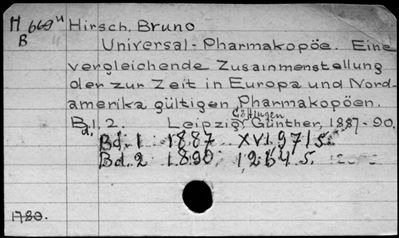 H 669ᵘ Hirsch, Bruno
B
Universal-Pharmakopöe. Eine
vergleichende Zusammenstellung
der zur Zeit in Europa und Nord-
amerika gültigen Pharmakopöen.
Göttingen
Bd. 2. Leipzig, Günther, 1887-90.
Bd. 1 1887 XVI, 971 S.
Bd. 2 1890 1264 S.
1780.